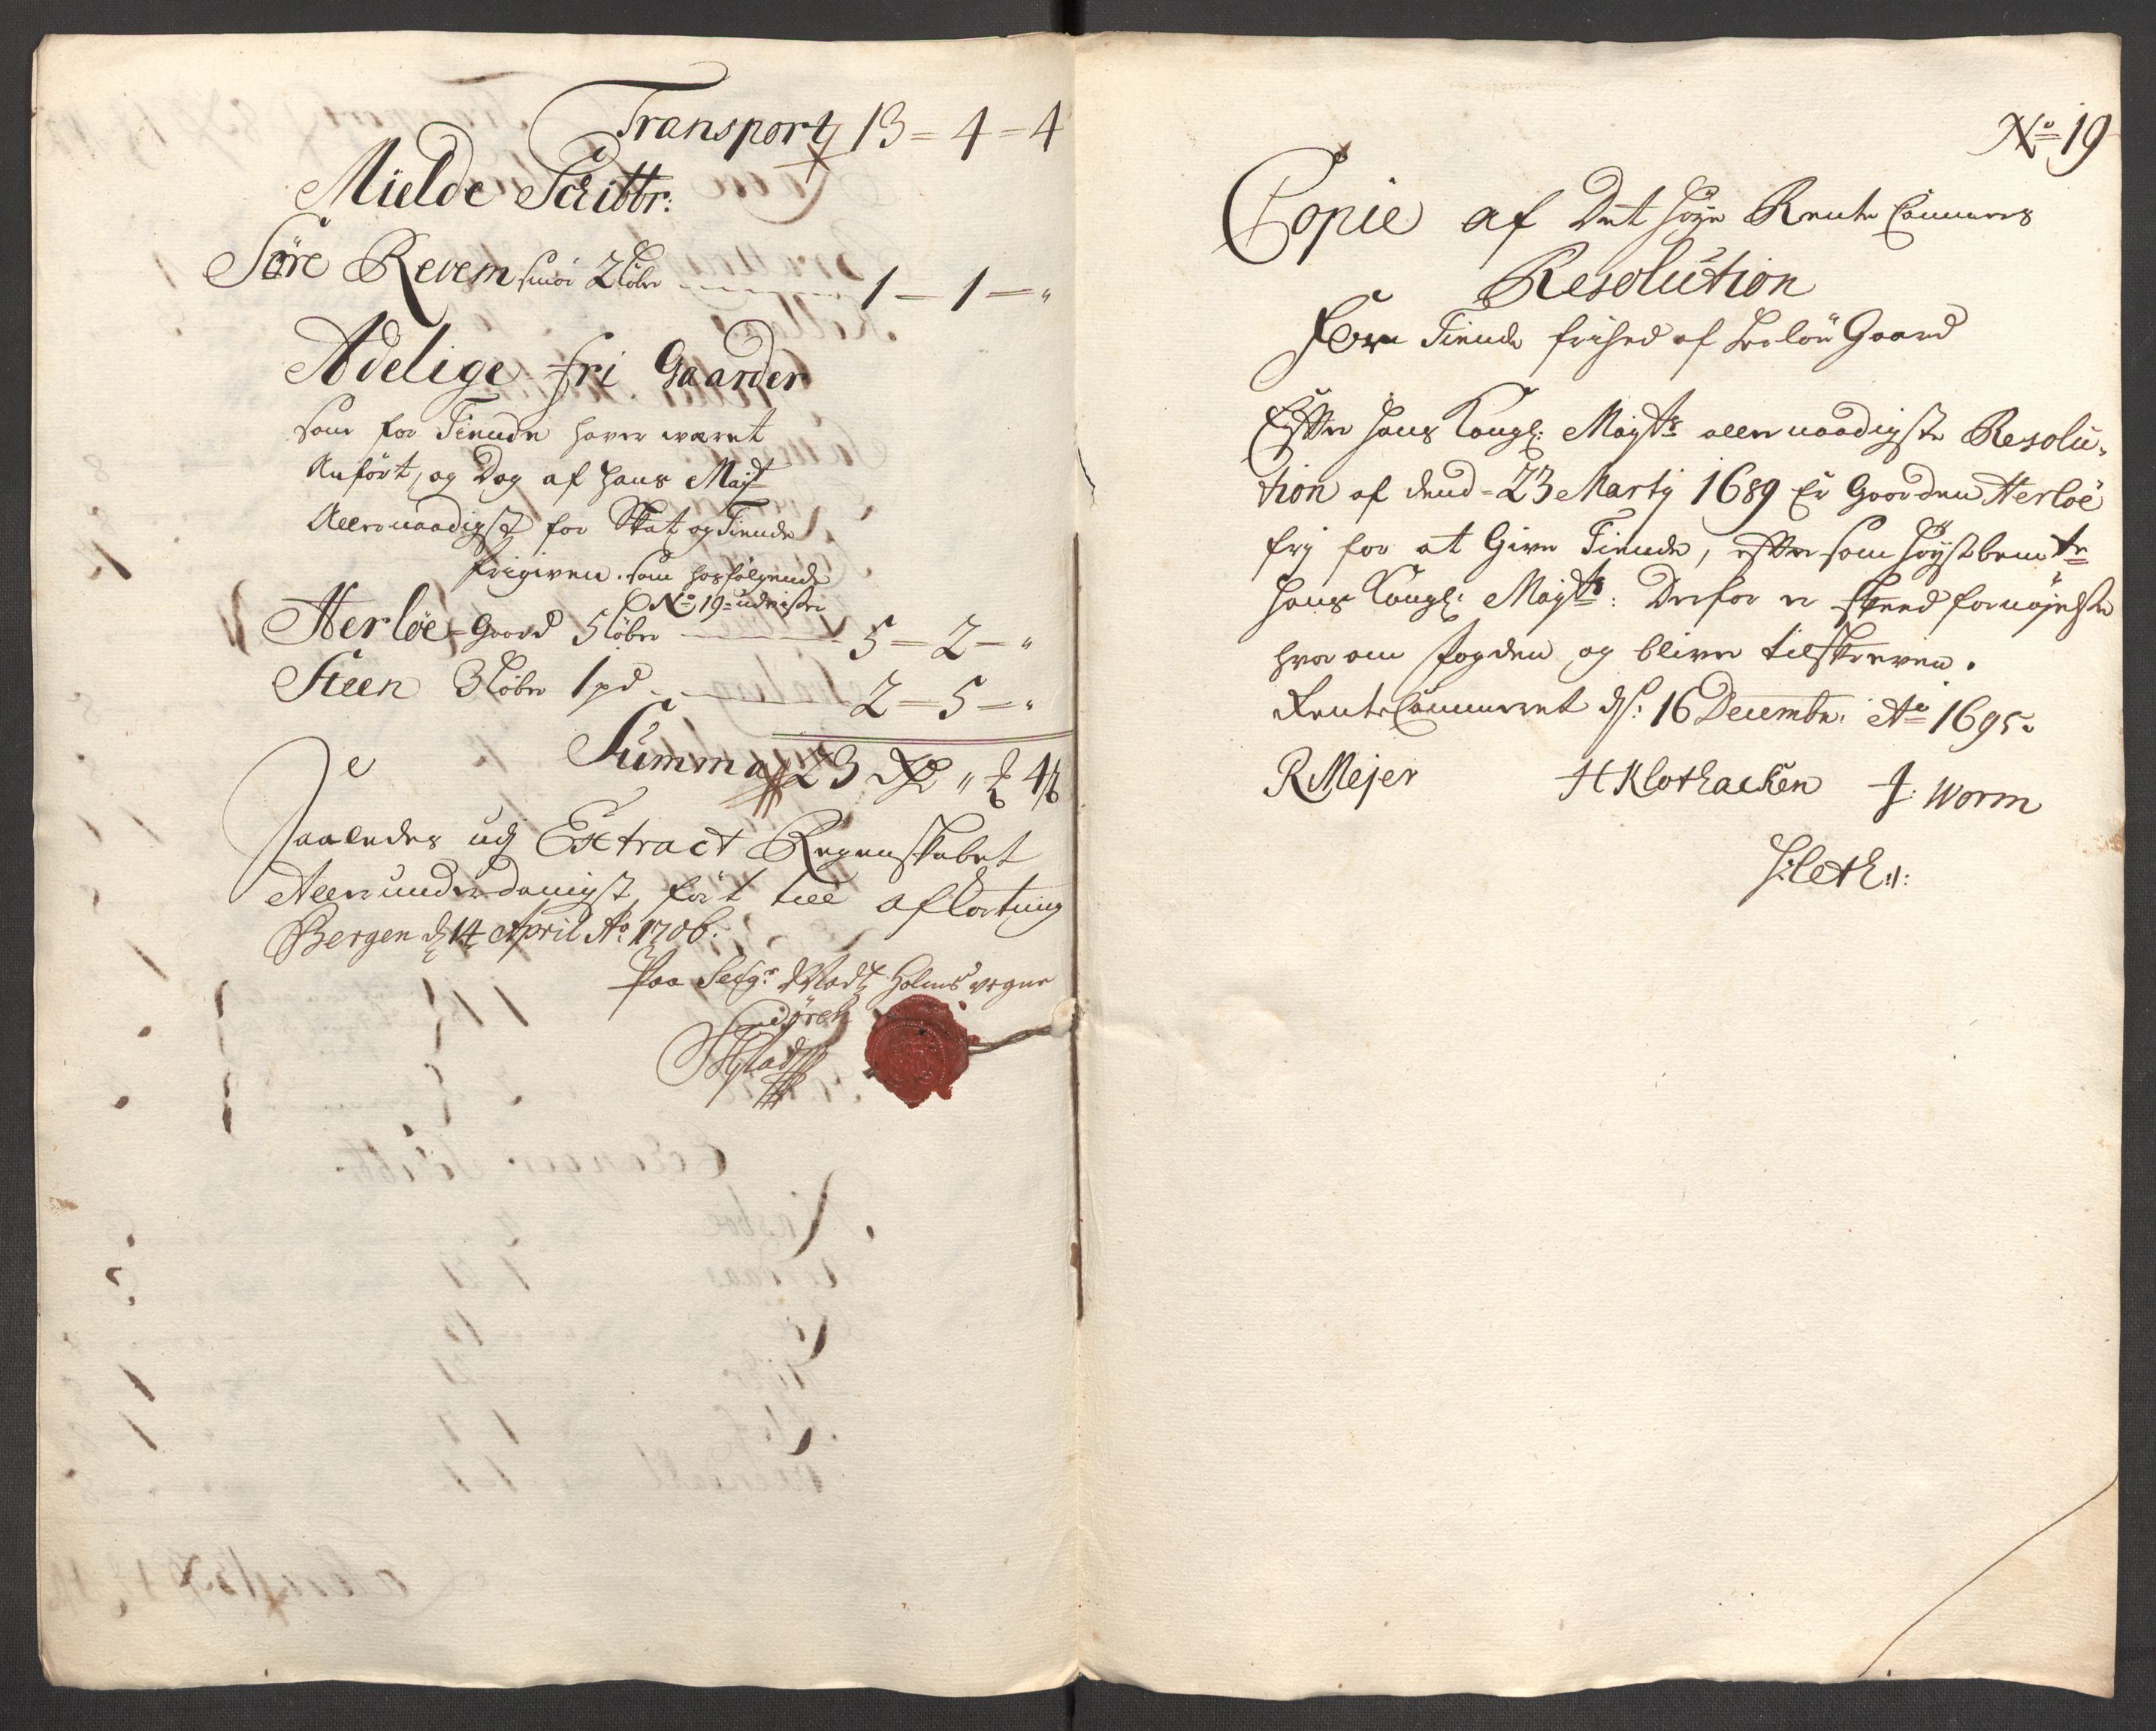 Transport 13 = 4 = 4
Mielde Schibbr:
Søre Revem smör 2 Løber 1 — 1 — "
Adelige fri Gaarder
som for Tiende hafver wæret
Anført, og Dog af hans Mayt
Allernaadigst for Skat og Tiende
frigiven. som hosfølgende
No 19 = udviser
Herløe = Gaard 5 Løber 5 — 2 — "
Steen 3 Løber 1 pd 2 — 5 — "
Summa 23 Rdr " ₰ 4 ß
Saaledes udj Extract Regenskabet
Allerunderdanigst ført till afkortning
Bergen d 14 April Ao 1706.
Paa Sefgr Madtz Holms vegne
No = 19
Copie af Det høye Rente Cammers
Resolution
For Tiende frihed af Herløe Gaard
Efter Hans Kongl: Maytts allernaadigste Resolu-
tion af dend = 23 Martij 1689 Er Gaarden Herløe
frij for at Give Tiende, efftersom høystbemte
Hans Kongl: Maytt: Derfor er skeed fornøyelse
hvorom fogden og bliver tilskreven.
RenteCammeret ds: 16 Decembr. Ao 1695.
R Mejer H Klothacken J: Worm